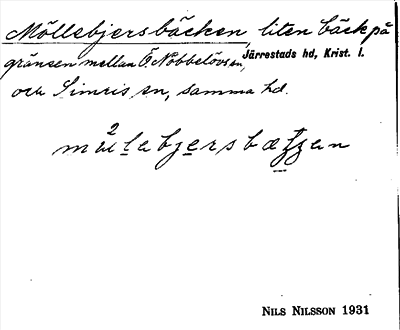 Möllebjersbäcken, liten bäck på
gränsen mellan Ö. Nöbbelövs sn, Järrestads hd, Krist. l.
och Simris sn, samma hd.
NILS NILSSON 1931